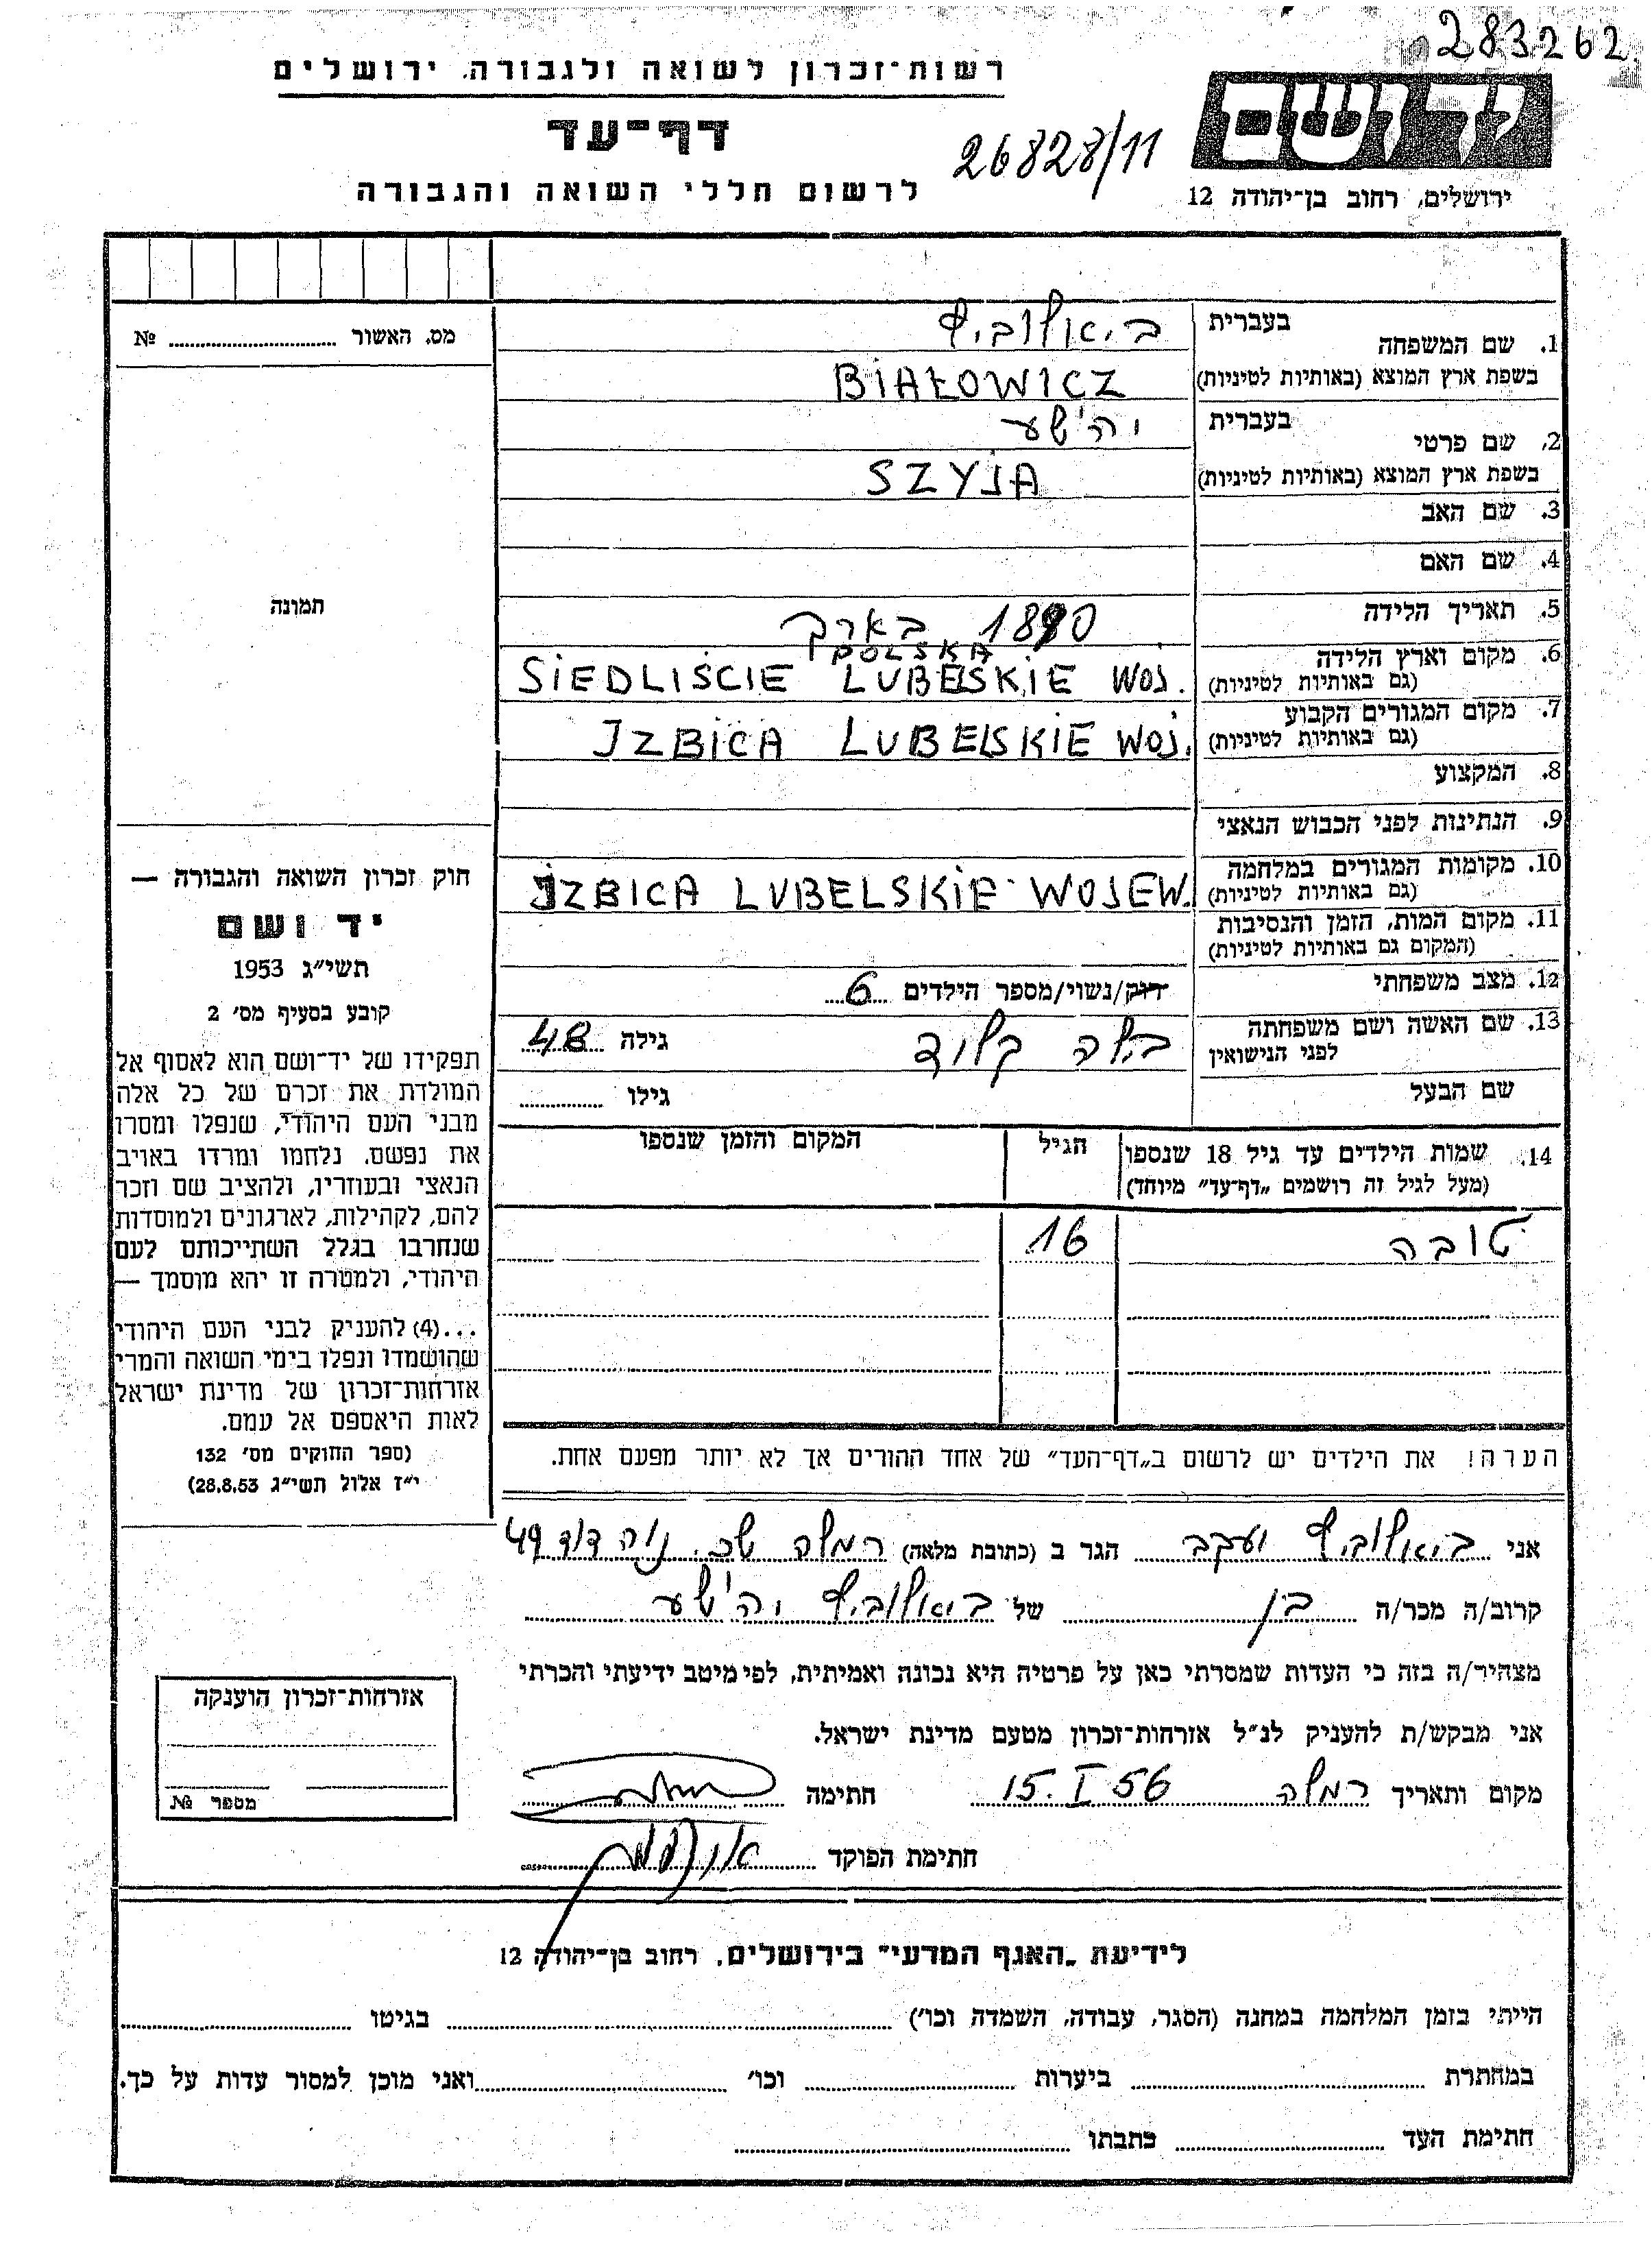 283262
רשות-זכרון לשואה ולגבורה, ירושלים
דף-עד
26828/11
לרשום חללי השואה והגבורה
יד ושם
ירושלים, רחוב בן-יהודה 12
מס. האשור № 
1. שם המשפחה בעברית ביאלוביץ
בשפת ארץ המוצא (באותיות לטיניות) BIAŁOWICZ
2. שם פרטי בעברית יהושע
בשפת ארץ המוצא (באותיות לטיניות) SZYJA
3. שם האב
4. שם האם
5. תאריך הלידה 1890 בארך
6. מקום וארץ הלידה POLSKA
(גם באותיות לטיניות) SIEDLIŚCIE LUBELSKIE WOJ.
7. מקום המגורים הקבוע
(גם באותיות לטיניות) IZBICA LUBELSKIE WOJ.
8. המקצוע
9. הנתינות לפני הכבוש הנאצי
10. מקומות המגורים במלחמה
(גם באותיות לטיניות) IZBICA LUBELSKIE WOJEW.
11. מקום המות, הזמן והנסיבות
(המקום גם באותיות לטיניות)
12. מצב משפחתי רוק/נשוי/מספר הילדים 6
13. שם האשה ושם משפחתה לפני הנישואין בילה גילה 48
שם הבעל גילו
14. שמות הילדים עד גיל 18 שנספו הגיל המקום והזמן שנספו
(מעל לגיל זה רושמים "דף-עד" מיוחד)
טובה 16
הערה! את הילדים יש לרשום ב"דף-העד" של אחד ההורים אך לא יותר מפעם אחת.
תמונה
חוק זכרון השואה והגבורה —
יד ושם
תשי"ג 1953
קובע בסעיף מס' 2
תפקידו של יד-ושם הוא לאסוף אל
המולדת את זכרם של כל אלה
מבני העם היהודי, שנפלו ומסרו
את נפשם, נלחמו ומרדו באויב
הנאצי ובעוזריו, ולהציב שם וזכר
להם, לקהילות, לארגונים ולמוסדות
שנחרבו בגלל השתייכותם לעם
היהודי, ולמטרה זו יהא מוסמך —
...(4) להעניק לבני העם היהודי
שהושמדו ונפלו בימי השואה והמרי
אזרחות-זכרון של מדינת ישראל
לאות היאספם אל עמם.
(ספר החוקים מס' 132
י"ז אלול תשי"ג 28.8.53)
אני ביאלוביץ יעקב הגר ב (כתובת מלאה) רמלה שכ. נוה דוד 49
קרוב/ה מכר/ה בן של ביאלוביץ יהושע
מצהיר/ה בזה כי העדות שמסרתי כאן על פרטיה היא נכונה ואמיתית, לפי מיטב ידיעתי והכרתי
אני מבקש/ת להעניק לנ"ל אזרחות-זכרון מטעם מדינת ישראל.
מקום ותאריך רמלה 15. I 56 חתימה
חתימת הפוקד
אזרחות-זכרון הוענקה
מספר №
לידיעת "האגף המדעי" בירושלים, רחוב בן-יהודה 12
הייתי בזמן המלחמה במחנה (הסגר, עבודה, השמדה וכו') בגיטו
במחתרת ביערות וכו' ואני מוכן למסור עדות על כך.
חתימת העד כתבתו